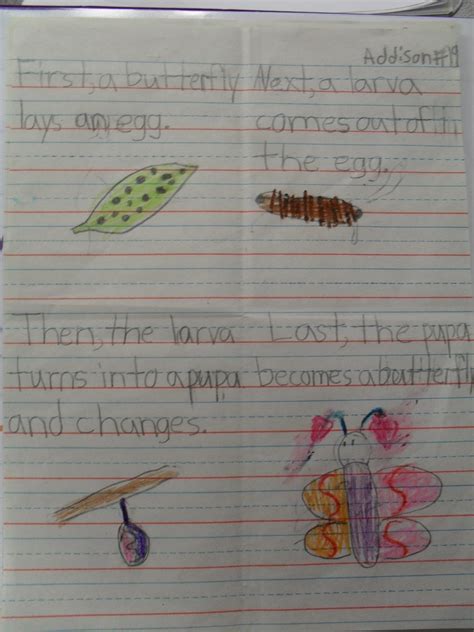 Addison #19
First, a butterfly
lays an egg.
Next, a larva
comes out of
the egg.
Then, the larva
turns into a pupa
and changes.
Last, the pupa
becomes a butterfly